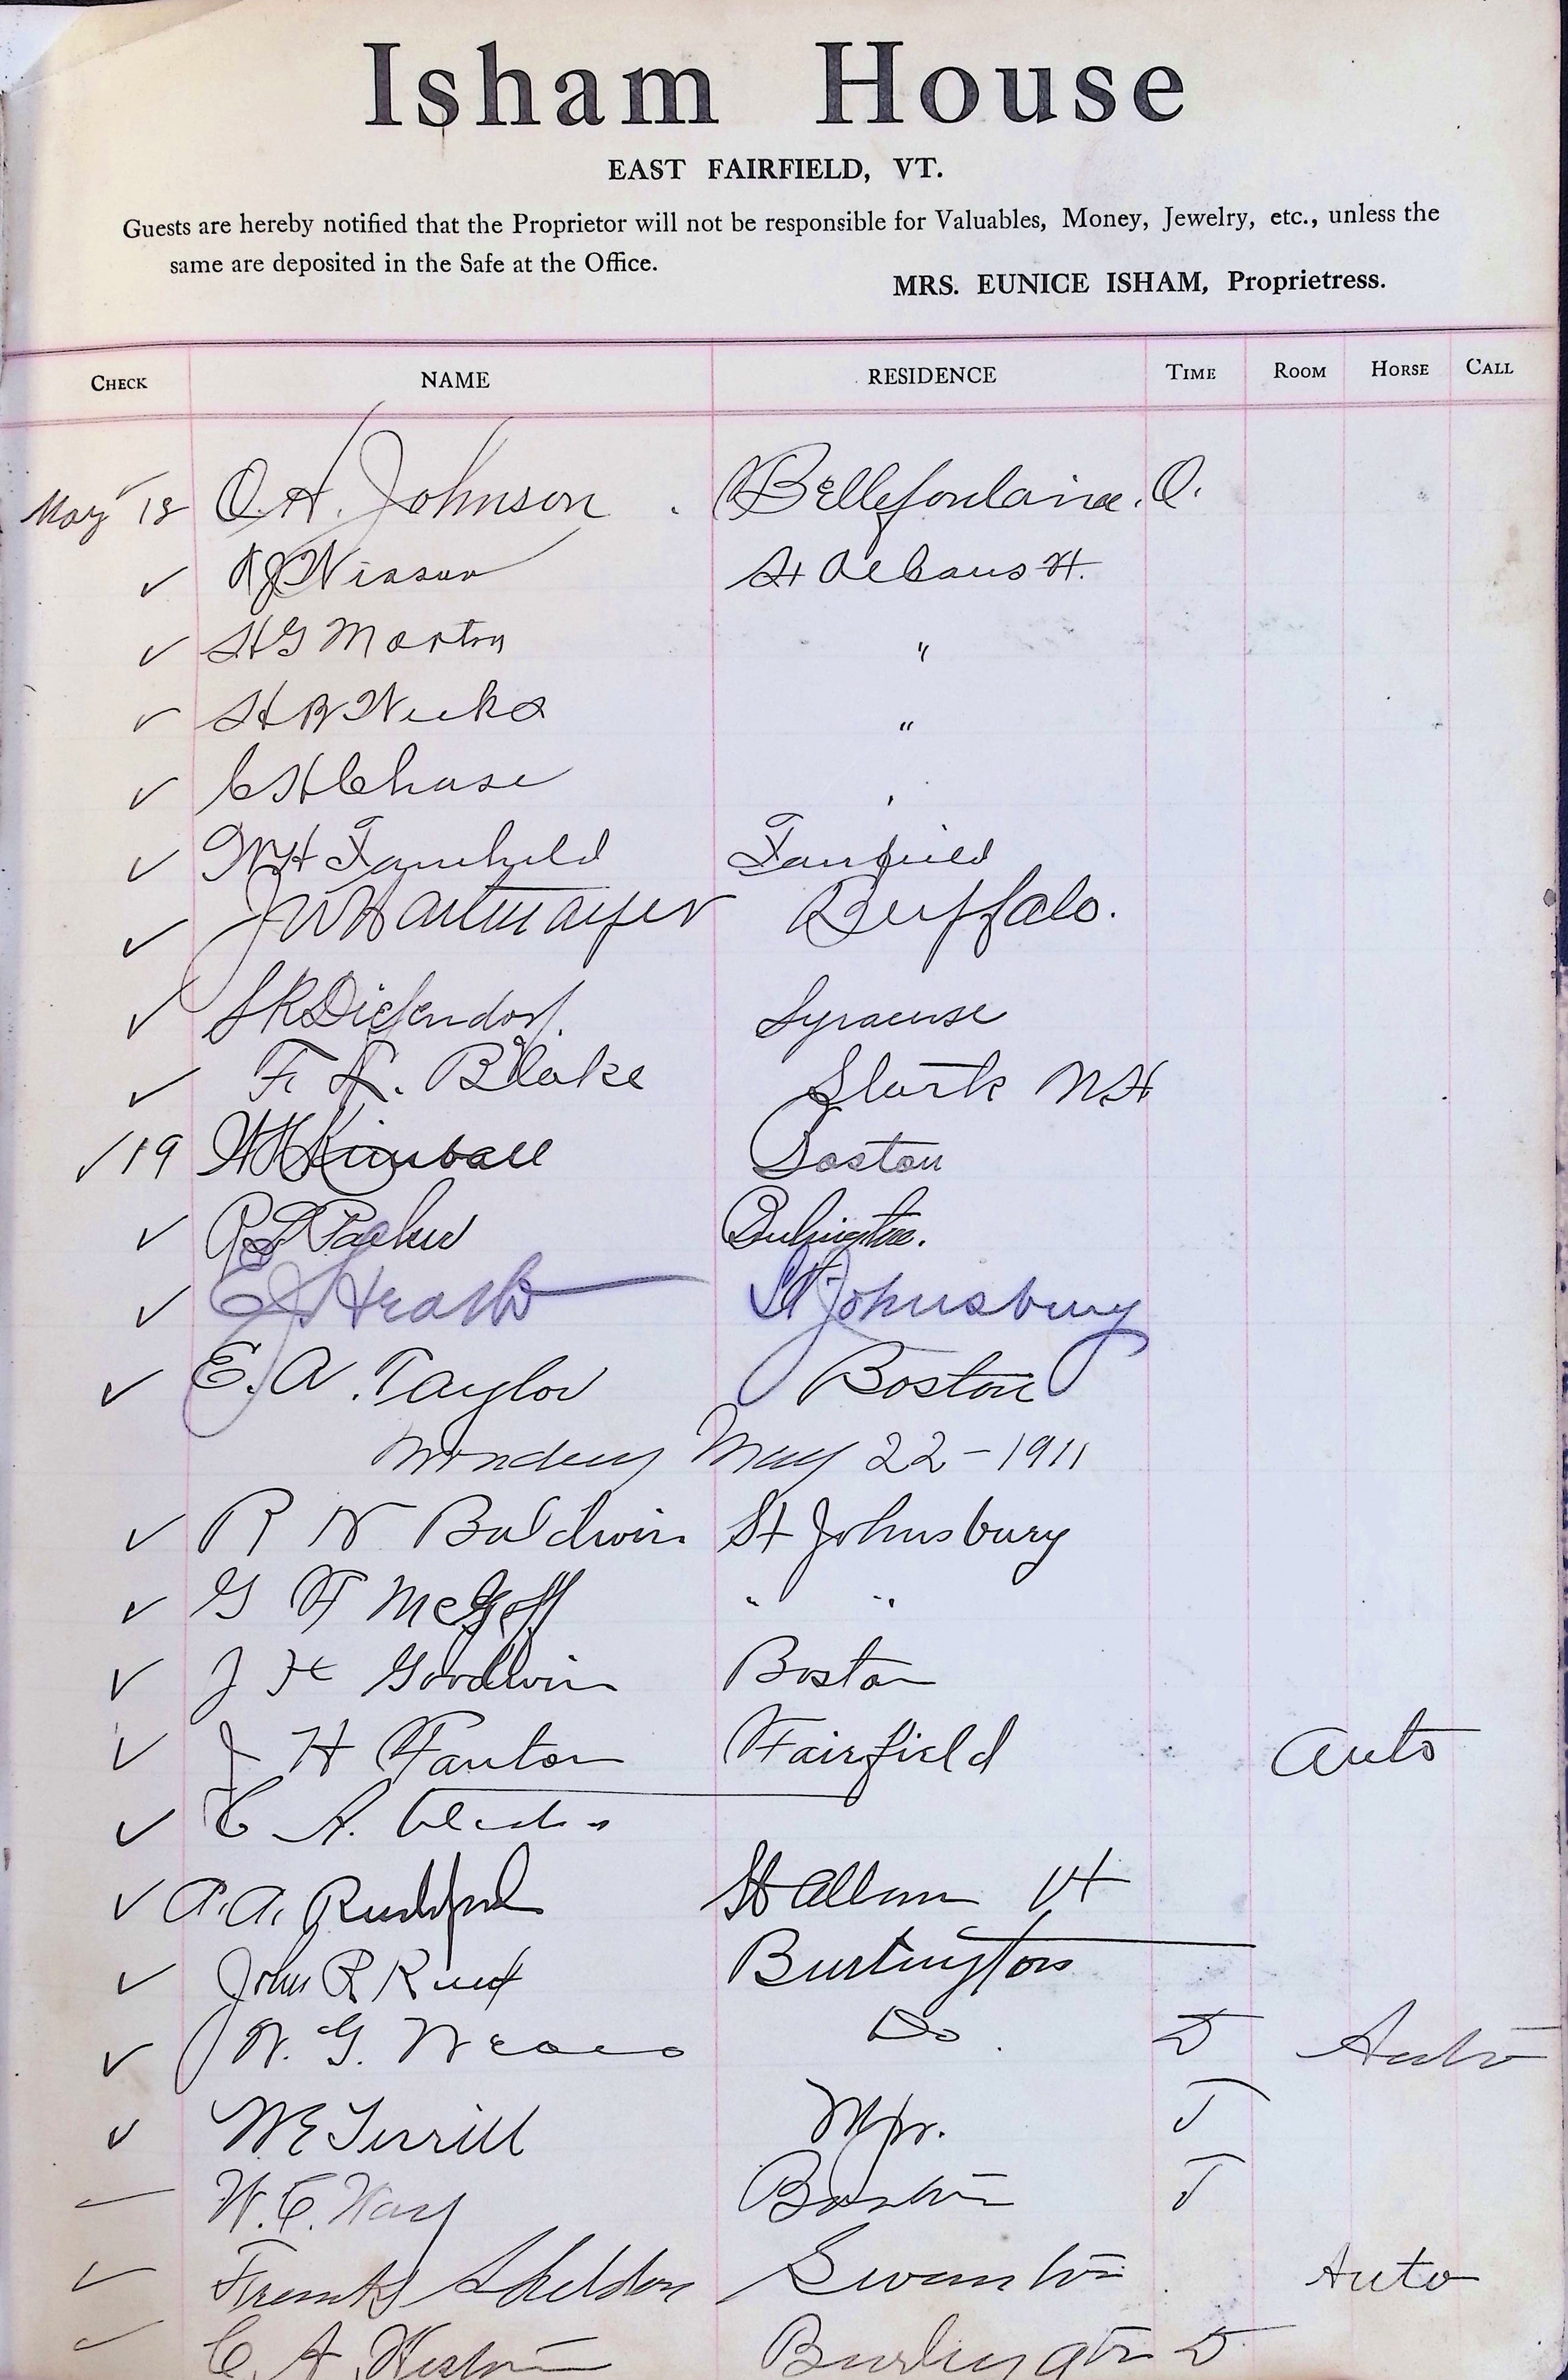 Isham House
EAST FAIRFIELD, VT.
Guests are hereby notified that the Proprietor will not be responsible for Valuables, Money, Jewelry, etc., unless the
same are deposited in the Safe at the Office.
MRS. EUNICE ISHAM, Proprietress.
CHECK NAME RESIDENCE TIME ROOM HORSE CALL
May 18 O. A. Johnson . Bellefontaine. O.
✓ St Albans
✓ H G Morton "
✓ H B Weeks "
✓ C H Chase
✓ W H Fairchild Fairfield
✓ J W Hartmayer Buffalo.
✓ S R Diefendorf. Syracuse
✓ F. L. Blake Stark N.H
✓ 19 Kimball Boston
✓ Parker Burlington.
✓ E J Heath St Johnsbury
✓ E. A. Taylor Boston
Monday May 22 - 1911
✓ R N Baldwin St Johnsbury
✓ G F McGoff " "
✓ J H Goodwin Boston
✓ J H Fanton Fairfield Auto
✓ C A.
✓ A. A. St Albans Vt
✓ John R Burlington
✓ W. G. Do. D Auto
✓ W E Terrill Mpr. T
W. C. Way Boston T
✓ Frank Sheldon Swanton Auto
✓ C. A. Burlington D